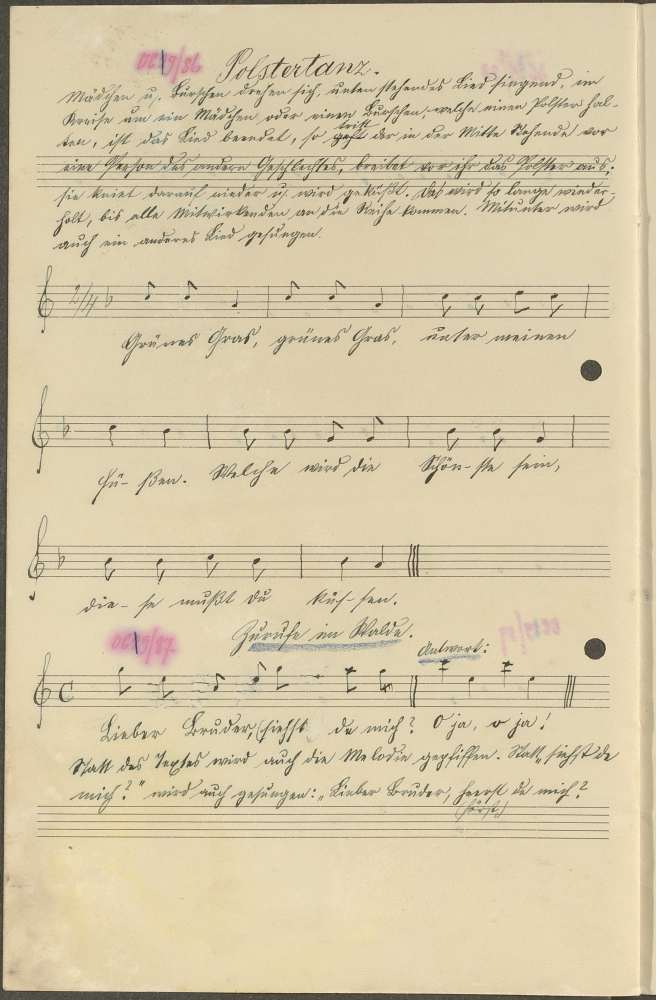 Polstertanz.
Mädchen u. Burschen drehen sich, unten stehendes Lied singend, im
Kreise um ein Mädchen oder einen Burschen, welche einen Polster hal-
ten, ist das Lied beendet, so geht tritt der in der Mitte Stehende vor
eine Person des andern Geschlechtes, breitet vor ihr das Polster aus;
sie kniet darauf nieder u. wird geküßt. Das wird so lange wieder-
holt, bis alle Mitwirkenden an die Reihe kommen. Mitunter wird
auch ein anderes Lied gesungen.
2/4
Grünes Gras, grünes Gras, unter meinen
Fü-ßen. Welche wird die Schön-ste sein,
die-se mußt du küs-sen.
Zurufe im Walde.
Antwort:
C
Lieber Bruder, siehst de mich? O ja, o ja!
Statt des Textes wird auch die Melodie gepfiffen. Statt „siehst de
mich?" wird auch gesungen: „Lieber Bruder, heerst de mich?
(hörst)